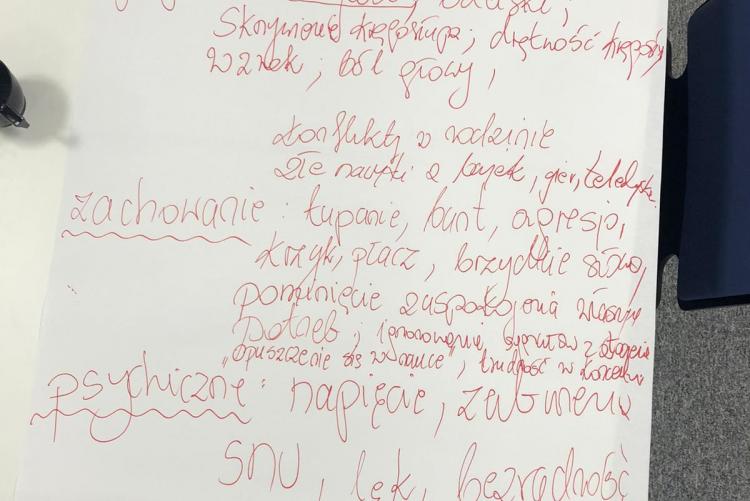 Skrzywienie kręgosłupa; drętwość kręgosł
wzrok; ból głowy,
konflikty w rodzinie
złe nawyki z bajek, gier, teledysk
zachowanie: tupanie, bunt, agresja,
krzyk, płacz, brzydkie słowa,
pominięcie zaspokojenia własnych
potrzeb; ignorowanie sygnałów z
"opuszczenie się w nauce", trudność w
psychiczne: napięcie, zaburzenia
snu, lęk, bezradność